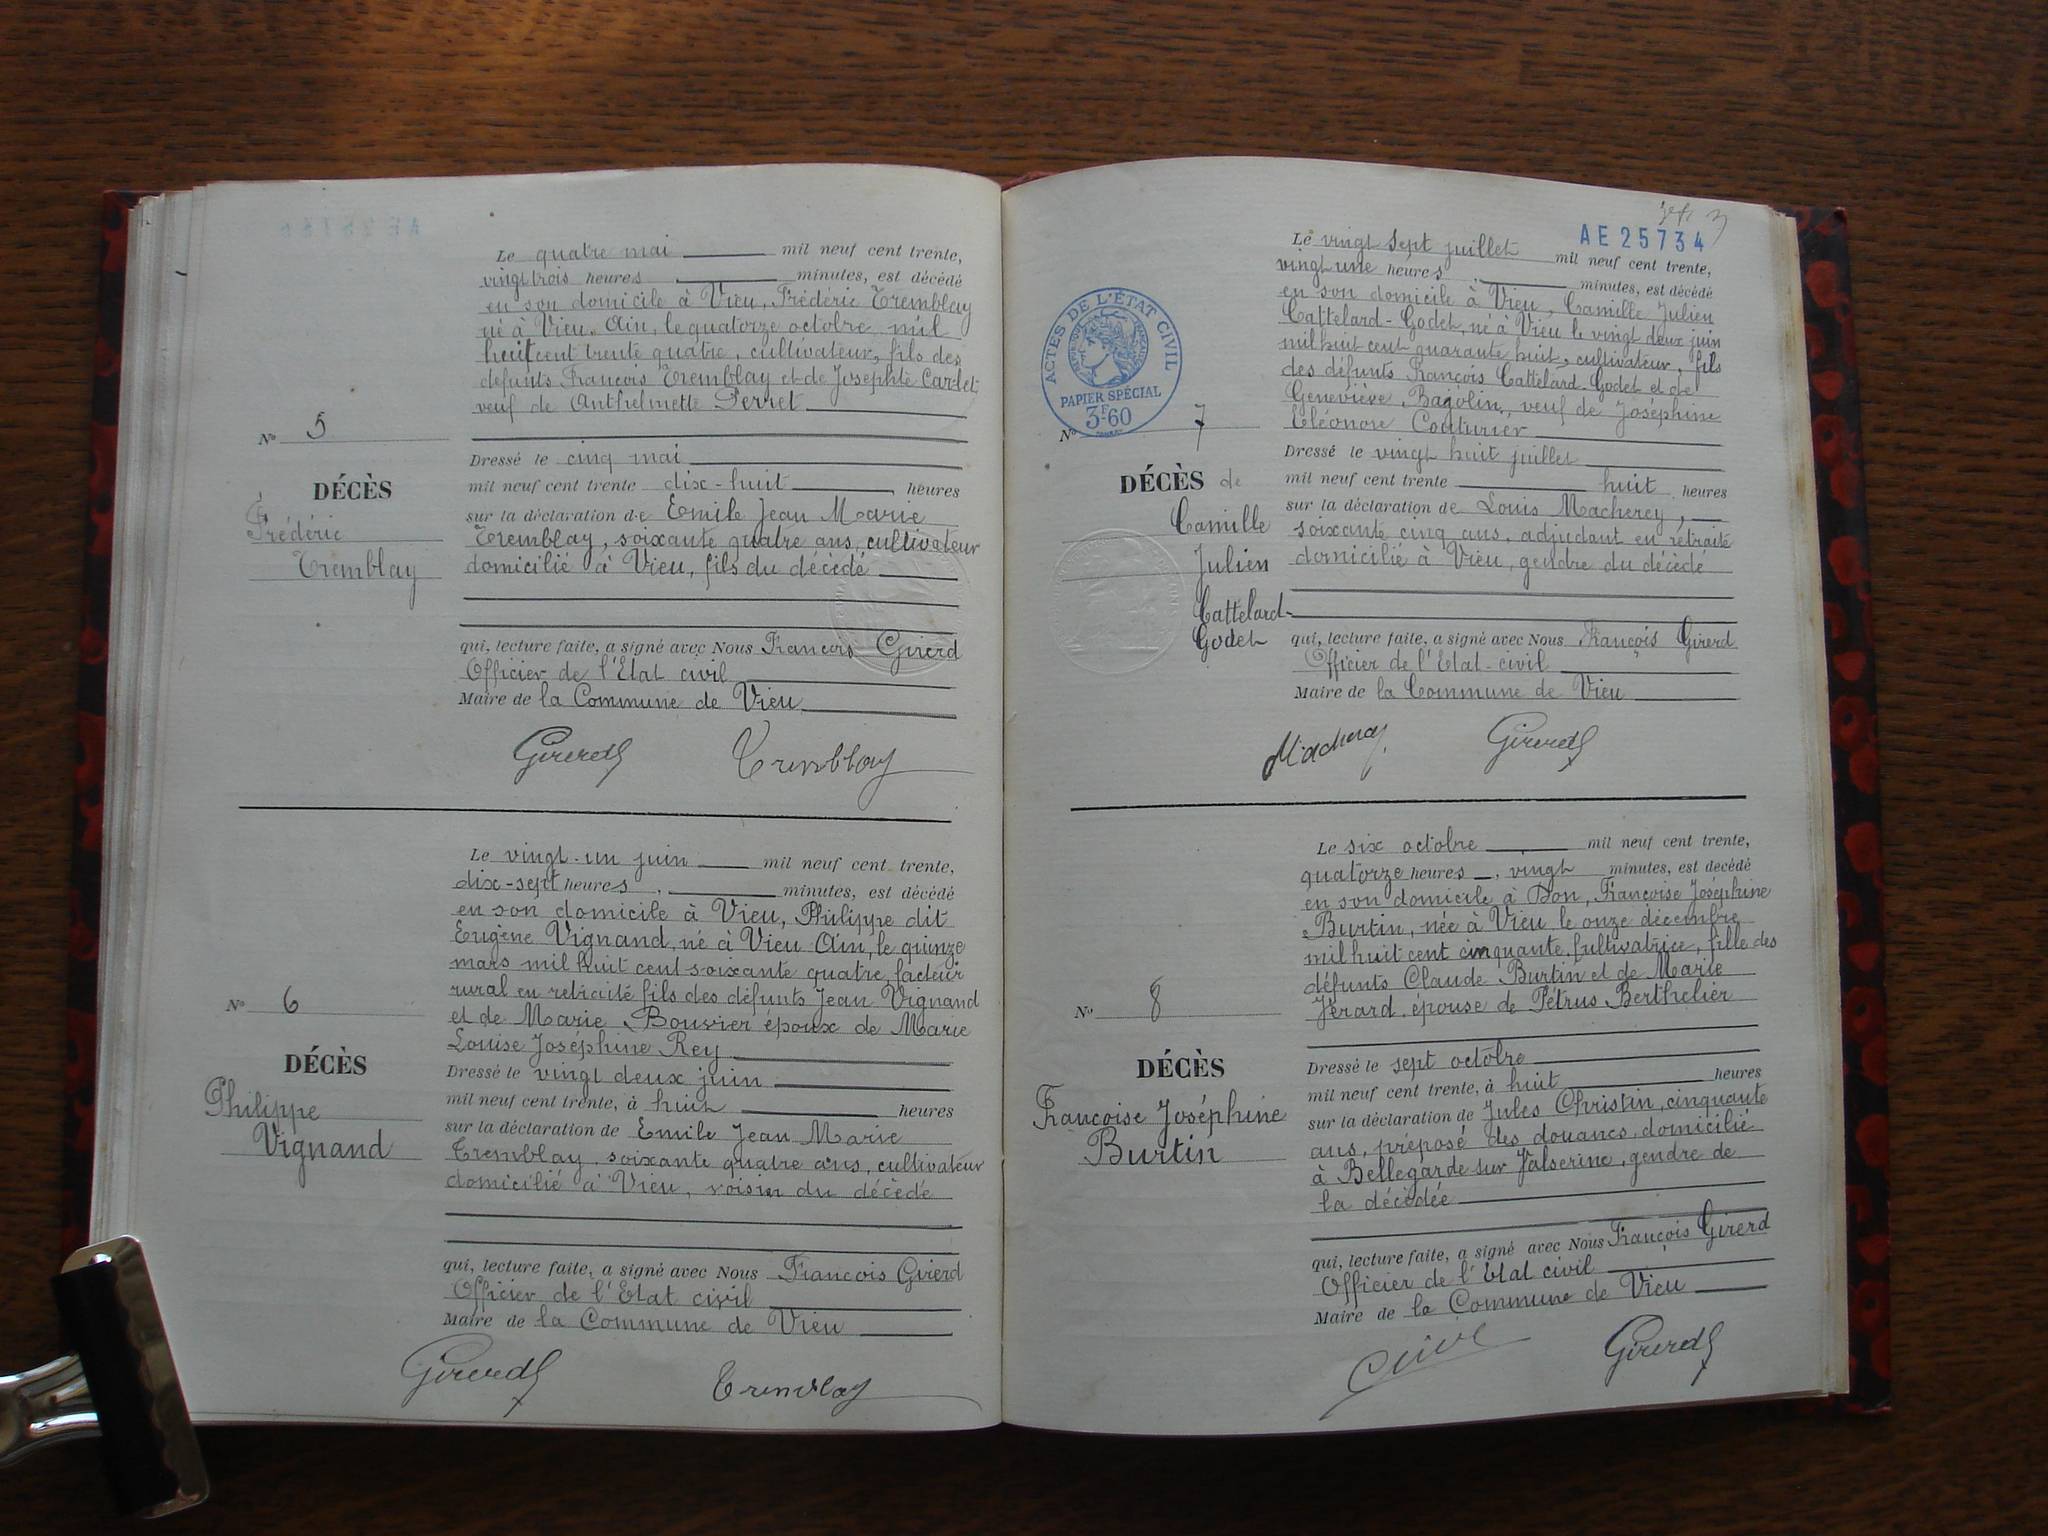 Le quatre mai mil neuf cent trente,
vingt trois heures minutes, est décédé
en son domicile à Vieu, Frédéric Tremblay
né à Vieu, Ain, le quatorze octobre mil
huit cent trente quatre, cultivateur, fils des
défunts François Tremblay et de Josephte Carlet,
veuf de Anthelmette Perret
N° 5
Dressé le cinq mai
DÉCÈS
mil neuf cent trente dix-huit heures
Frédéric
Tremblay
sur la déclaration de Emile Jean Marie
Tremblay, soixante quatre ans, cultivateur
domicilié à Vieu, fils du décédé
qui, lecture faite, a signé avec Nous François Girerd
Officier de l'Etat civil
Maire de la Commune de Vieu
Girerd Tremblay
Le vingt-un juin mil neuf cent trente,
dix-sept heures minutes, est décédé
en son domicile à Vieu, Philippe dit
Eugène Vignand, né à Vieu Ain, le quinze
mars mil huit cent soixante quatre, facteur
rural en retraité fils des défunts Jean Vignand
et de Marie Bouvier époux de Marie
Louise Joséphine Rey
N° 6
DÉCÈS
Philippe
Vignand
Dressé le vingt deux juin
mil neuf cent trente, à huit heures
sur la déclaration de Emile Jean Marie
Tremblay, soixante quatre ans, cultivateur
domicilié à Vieu, voisin du décédé
qui, lecture faite, a signé avec Nous François Girerd
Officier de l'Etat civil
Maire de la Commune de Vieu
Girerd Tremblay
AE 25734
Le vingt sept juillet mil neuf cent trente,
vingt une heures minutes, est décédé
en son domicile à Vieu, Camille Julien
Cattelard-Godet, né à Vieu le vingt deux juin
mil huit cent quarante huit, cultivateur, fils
des défunts François Cattelard-Godet et de
Geneviève Bagolin, veuf de Joséphine
Eléonore Couturier
ACTES DE L'ÉTAT CIVIL
RÉPUBLIQUE FRANÇAISE
PAPIER SPÉCIAL
3F60
N° 7
DÉCÈS de
Camille
Julien
Cattelard-
Godet
Dressé le vingt huit juillet
mil neuf cent trente huit heures
sur la déclaration de Louis Macherey,
soixante cinq ans, adjudant en retraite
domicilié à Vieu, gendre du décédé
qui, lecture faite, a signé avec Nous François Girerd
Officier de l'Etat-civil
Maire de la Commune de Vieu
Macherey Girerd
Le six octobre mil neuf cent trente,
quatorze heures, vingt minutes, est décédé
en son domicile à Don, Françoise Joséphine
Burtin, née à Vieu le onze décembre
mil huit cent cinquante, cultivatrice, fille des
défunts Claude Burtin et de Marie
Jérard, épouse de Pétrus Berthelier
N° 8
DÉCÈS
Françoise Joséphine
Burtin
Dressé le sept octobre
mil neuf cent trente, à huit heures
sur la déclaration de Jules Christin, cinquante
ans, préposé des douanes, domicilié
à Bellegarde sur Valserine, gendre de
la décédée
qui, lecture faite, a signé avec Nous François Girerd
Officier de l'Etat civil
Maire de la Commune de Vieu
Girerd